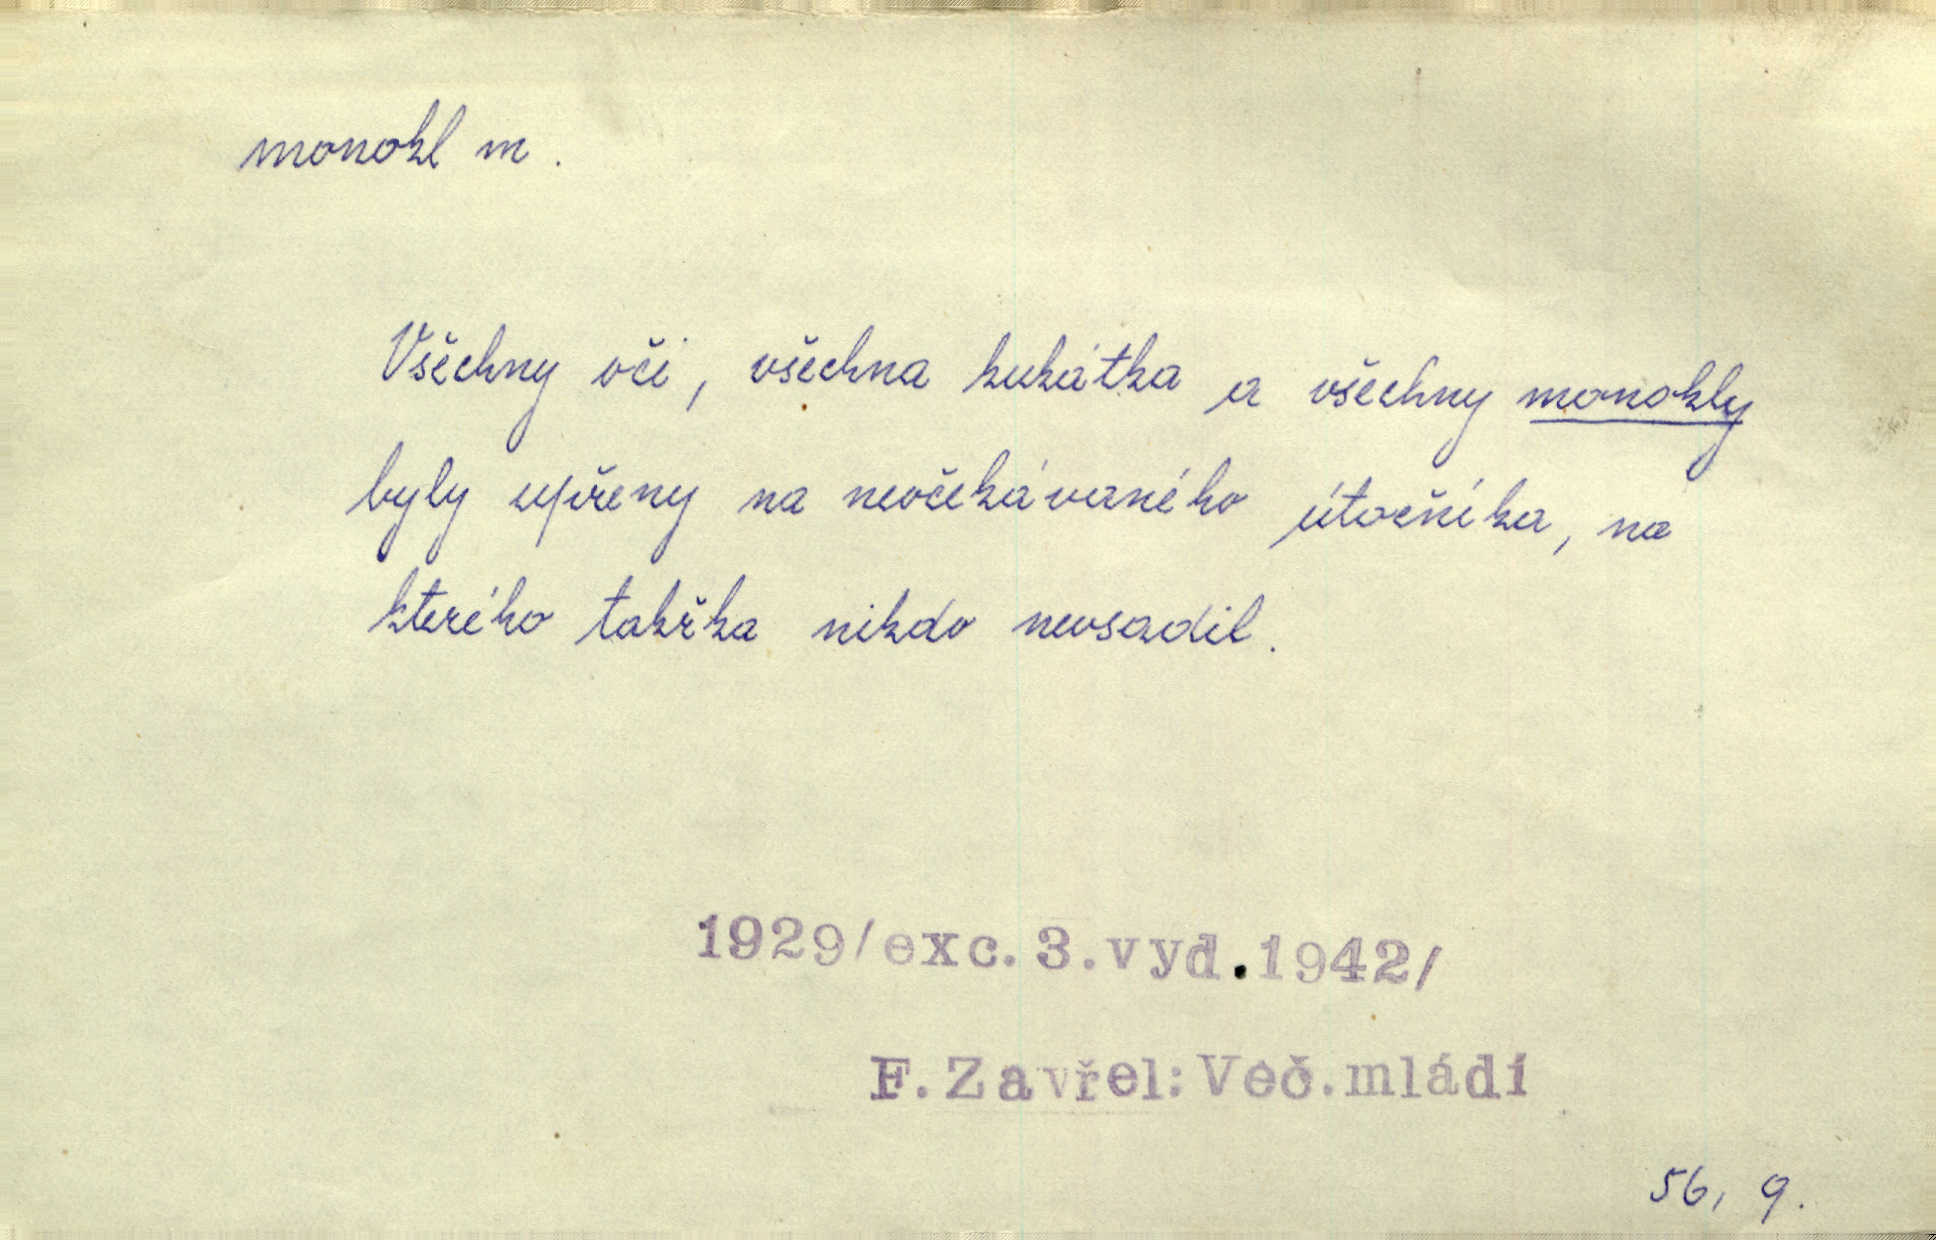 monokl m.
Všechny oči, všechna kukátka a všechny monokly
byly upřeny na neočekávaného útočníka, na
kterého takřka nikdo nevsadil.
1929/exc.3.vyd.1942/
F.Zavřel:Več.mládí
56, 9.